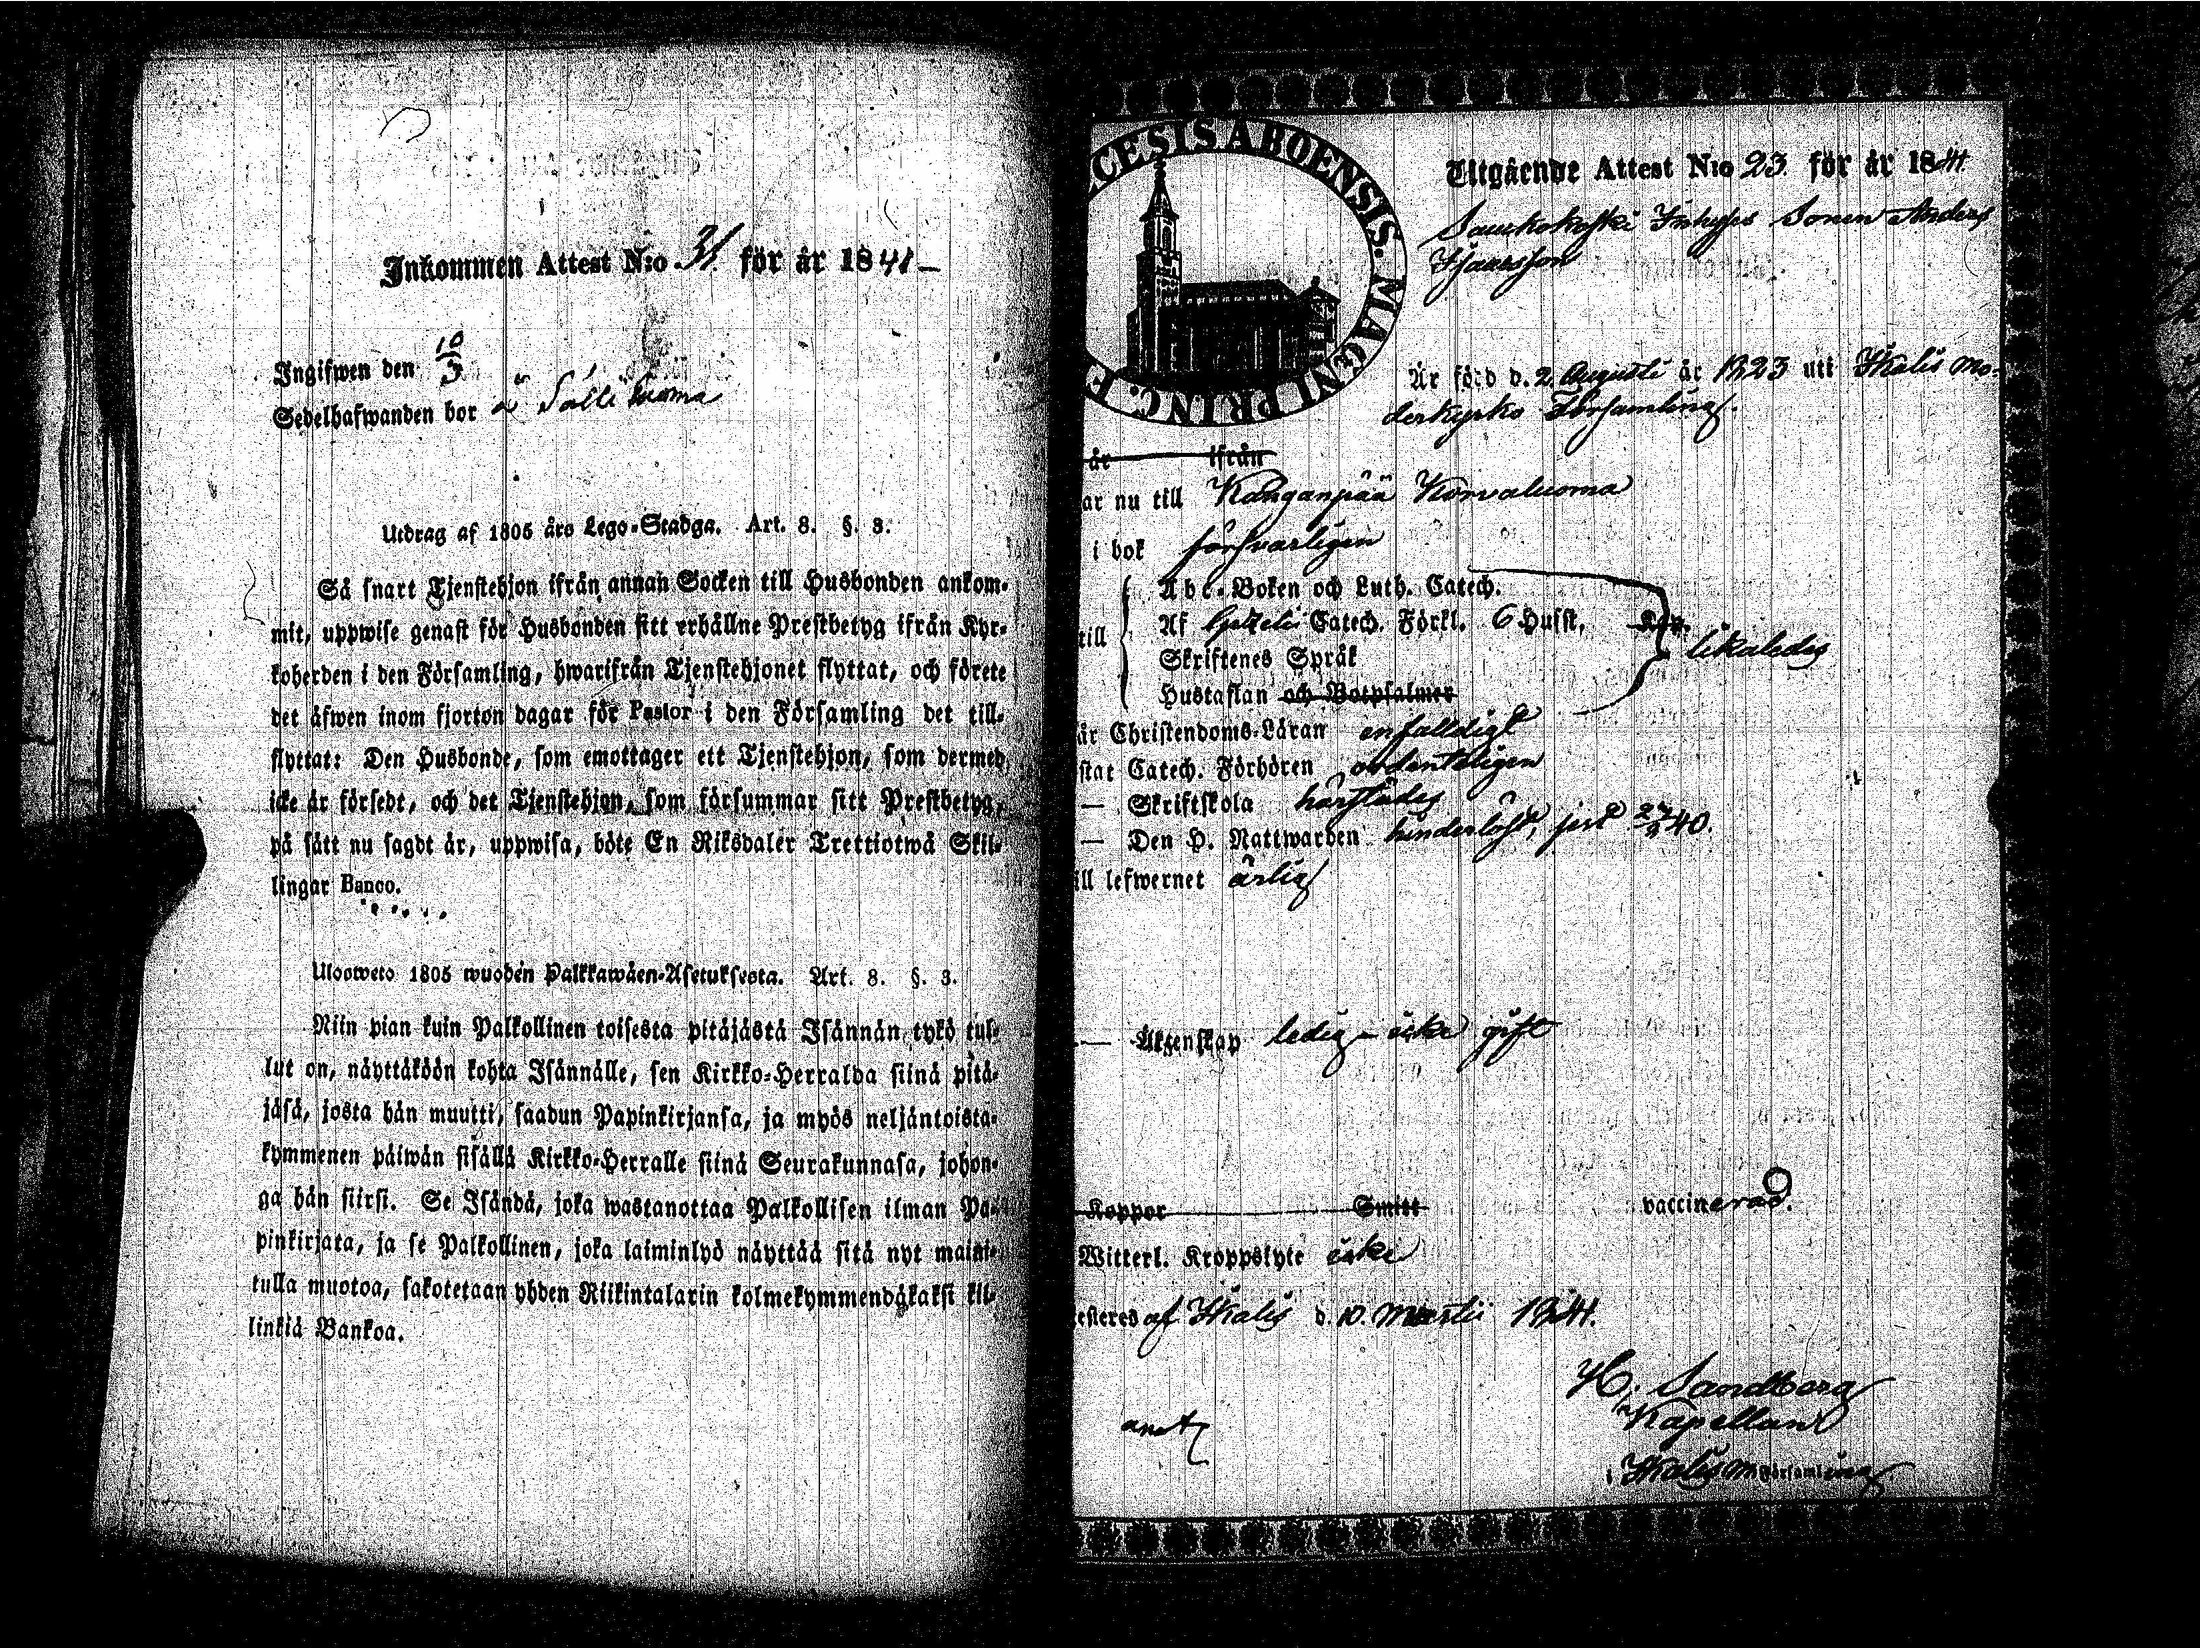 Inkommen Attest N:o 31. för år 1841 –
Ingifwen den 10/3
Sedelhafwanden bor å
Utdrag af 1805 års Lego-Stadga. Art. 8. §. 3.
Så snart Tjenstehjon ifrån annan Socken till Husbonden ankom-
mit, uppwise genast för Husbonden sitt erhållne Prestbetyg ifrån Kyr-
koherden i den Församling, hwarifrån Tjenstehjonet flyttat, och förete
det äfwen inom fjorton dagar för Pastor i den Församling det till-
flyttat: Den Husbonde, som emottager ett Tjenstehjon, som dermed
icke är försedt, och det Tjenstehjon, som försummar sitt Prestbetyg,
på sätt nu sagdt är, uppwisa, böte En Riksdaler Trettiotwå Skil-
lingar Banco.
Uloosweto 1805 wuoden Palkkawäen-Asetuksesta. Art. 8. §. 3.
Niin pian kuin Palkollinen toisesta pitäjästä Isännän tykö tul-
lut on, näyttäköön kohta Isännälle, sen Kirkko-Herralda siinä pitä-
jäsä, josta hän muutti, saadun Papinkirjansa, ja myös neljäntoista-
kymmenen päiwän sisällä Kirkko-Herralle siinä Seurakunnasa, johon-
ga hän siirsi. Se Isändä, joka wastanottaa Palkollisen ilman Pa-
pinkirjata, ja se Palkollinen, joka laiminlyö näyttää sitä nyt maini-
tulla muotoa, sakotetaan yhden Riikintalarin kolmekymmendäkaksi kil-
linkiä Bankoa.
CESIS ABOENSIS. MAGNI PRINC. F
Utgående Attest N:o 23 för år 1841.
Inhyses Sonen Anders
Isaacsson
Är född d. 2 Augusti år 1823 uti Ikalis mo-
derkyrko Församling.
år ifrån
ar nu till Kanganpää Korvaluoma
i bok försvarligen
till
Abc-Boken och Luth. Catech.
Af Gezelii Catech. Förkl. 6 Husst. Kap.
Skriftenes Språk
Hustaflan och Botpsalmer
likaledes
är Christendoms-Läran enfalldigt
stat Catech. Förhören ordenteligen
— Skriftskola härstädes
— Den H. Nattwarden hinderlöst, sist 27/9 40.
ill lefwernet ärlig
— Äktenskap ledig – icke gift
Koppor Smitt vaccinerad.
Witterl. Kroppslyte icke
testeres af Ikalis d. 10. Martii 1841.
H. Sandberg
Kapellan
i Ikalis m församling